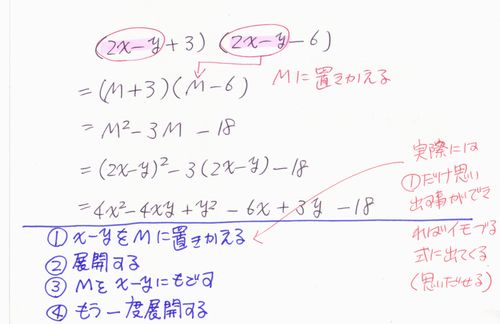 (2x-y+3) (2x-y-6)
= (M+3)(M-6)
Mに置きかえる
= M²-3M-18
= (2x-y)²-3(2x-y)-18
= 4x²-4xy+y²-6x+3y-18
① x-yをMに置きかえる
② 展開する
③ Mをx-yにもどす
④ もう一度展開する
実際には
①だけ思い
出す事ができ
ればイモヅル
式に出てくる
(思いだせる)